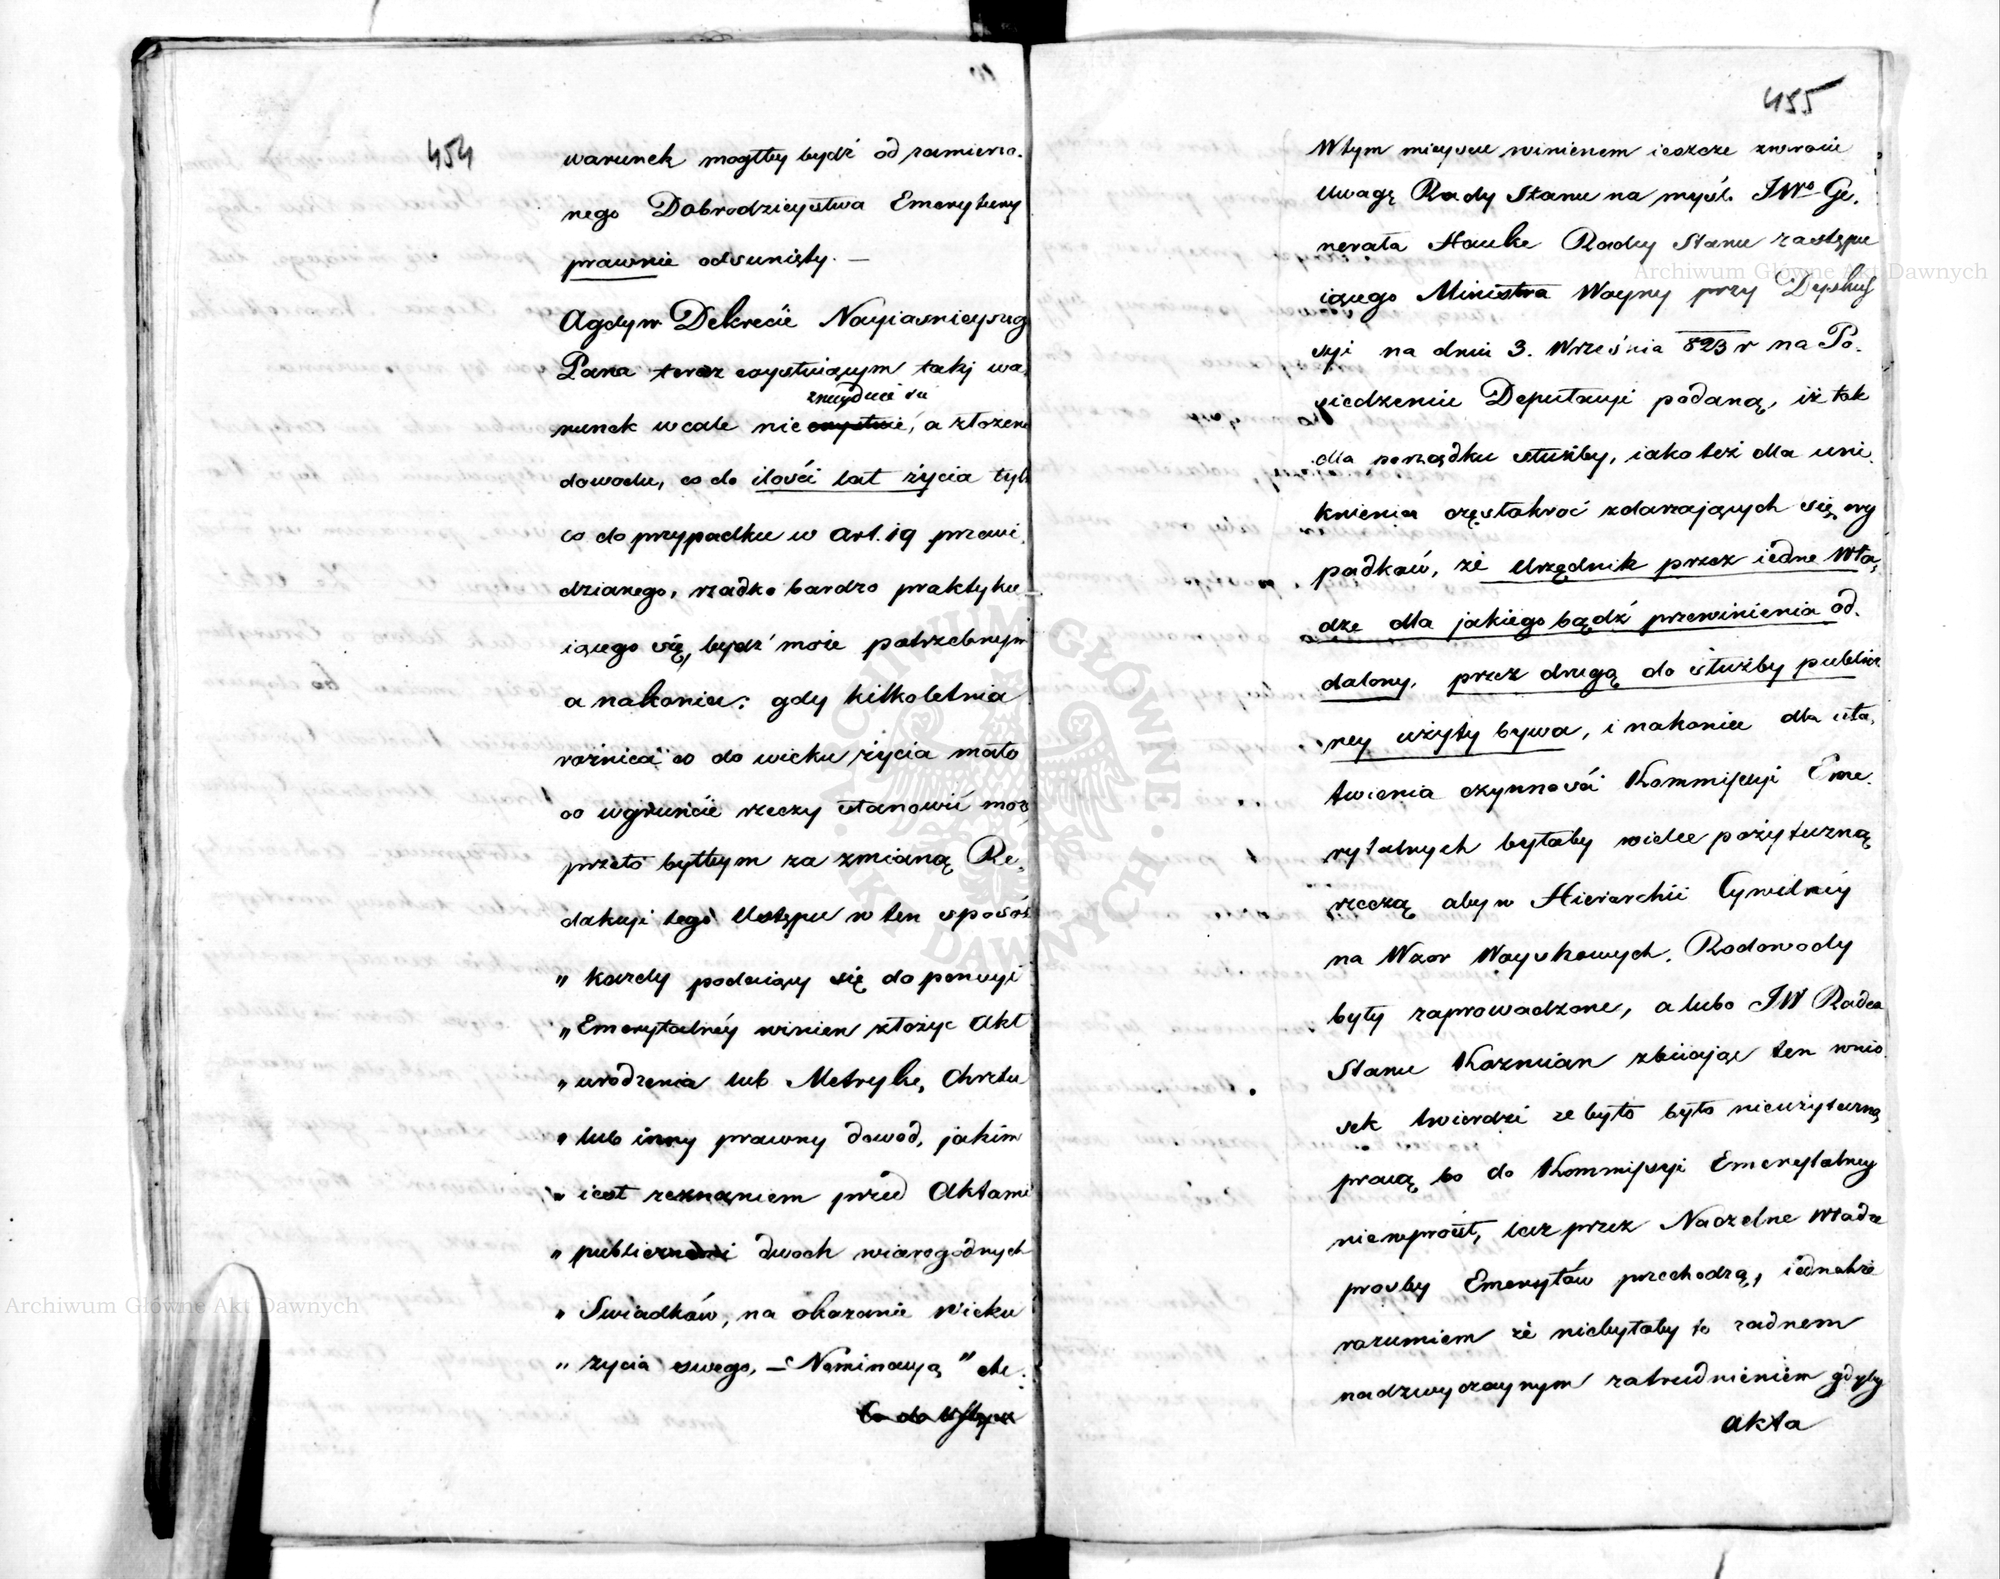 454
warunek mogłby bydź od zamierzo.
nego Dobrodzieystwa Emerytury
prawnie odsunięty. —
A gdy w Dekrecie Nayiasnieyszeg
Pana teraz exystuiącym taki wa,
znayduie się
runek wcale nie exystuie, a złożenie
dowodu, co do ilości lat życia tyl
co do przypadku w Art. 19 przewi,
dzianego, rzadko bardzo praktyku
iącego się, bydź może potrzebnym
a nakoniec: gdy kilkoletnia
rożnica co do wieku życia mało
co w gruncie rzeczy stanowić może
przeto byłbym za zmianą Re,
dakcyi tego Ustępu w ten sposób
„ każdy podaiący się do pensyi
„ Emerytalnéy winien złożyc Akt
„ urodzenia lub Metrykę, Chrztu
„ lub inny prawny dowod, jakim
„ iest zeznaniem przed Aktami
„ publicznemi dwoch wiarogodnych
„ Swiadków, na okazanie Wieku
„ życia swego, — Nominacyą" etc.
Co do Ustępu
455
W tym mieyscu winienem ieszcze zwrocić
Uwagę Rady Stanu na myśl JWo Ge,
nerała Hauke Radcy Stanu zastępu
iącego Ministra Woyny przy Dyskus
syi na dniu 3. Września 823 r na Po.
siedzeniu Deputacyi podaną, iż tak
dla porządku służby, iako też dla uni.
knienia częstokroć zdarzających się wy
padków, że Urzędnik przez iedne Wła,
dze dla jakiego bądź przewinienia od.
dalony, przez drugą do służby public
ney użyty bywa, i nakoniec dla uła,
twienia czynności Kommissyi Eme.
rytalnych byłaby wielce pożyteczną
rzeczą aby w Hierarchii Cywilnéy
na Wzor Woyskowych, Rodowody
były zaprowadzone, a lubo JW Radca
Stanu Kozmian zbiiając ten wnio
sek twierdzi że było było nieużyteczną
pracą bo do Kommissyi Emerytalney
nie wprost, lecz przez Naczelne Władze
prosby Emerytów przechodzą, iednakże
rozumiem że niebyłoby to żadnem
nadzwyczaynym zatrudnieniem gdyby
Akta
Archiwum Główne Akt Dawnych
Archiwum Główne Akt Dawnych
ARCHIWUM GŁÓWNE AKT DAWNYCH